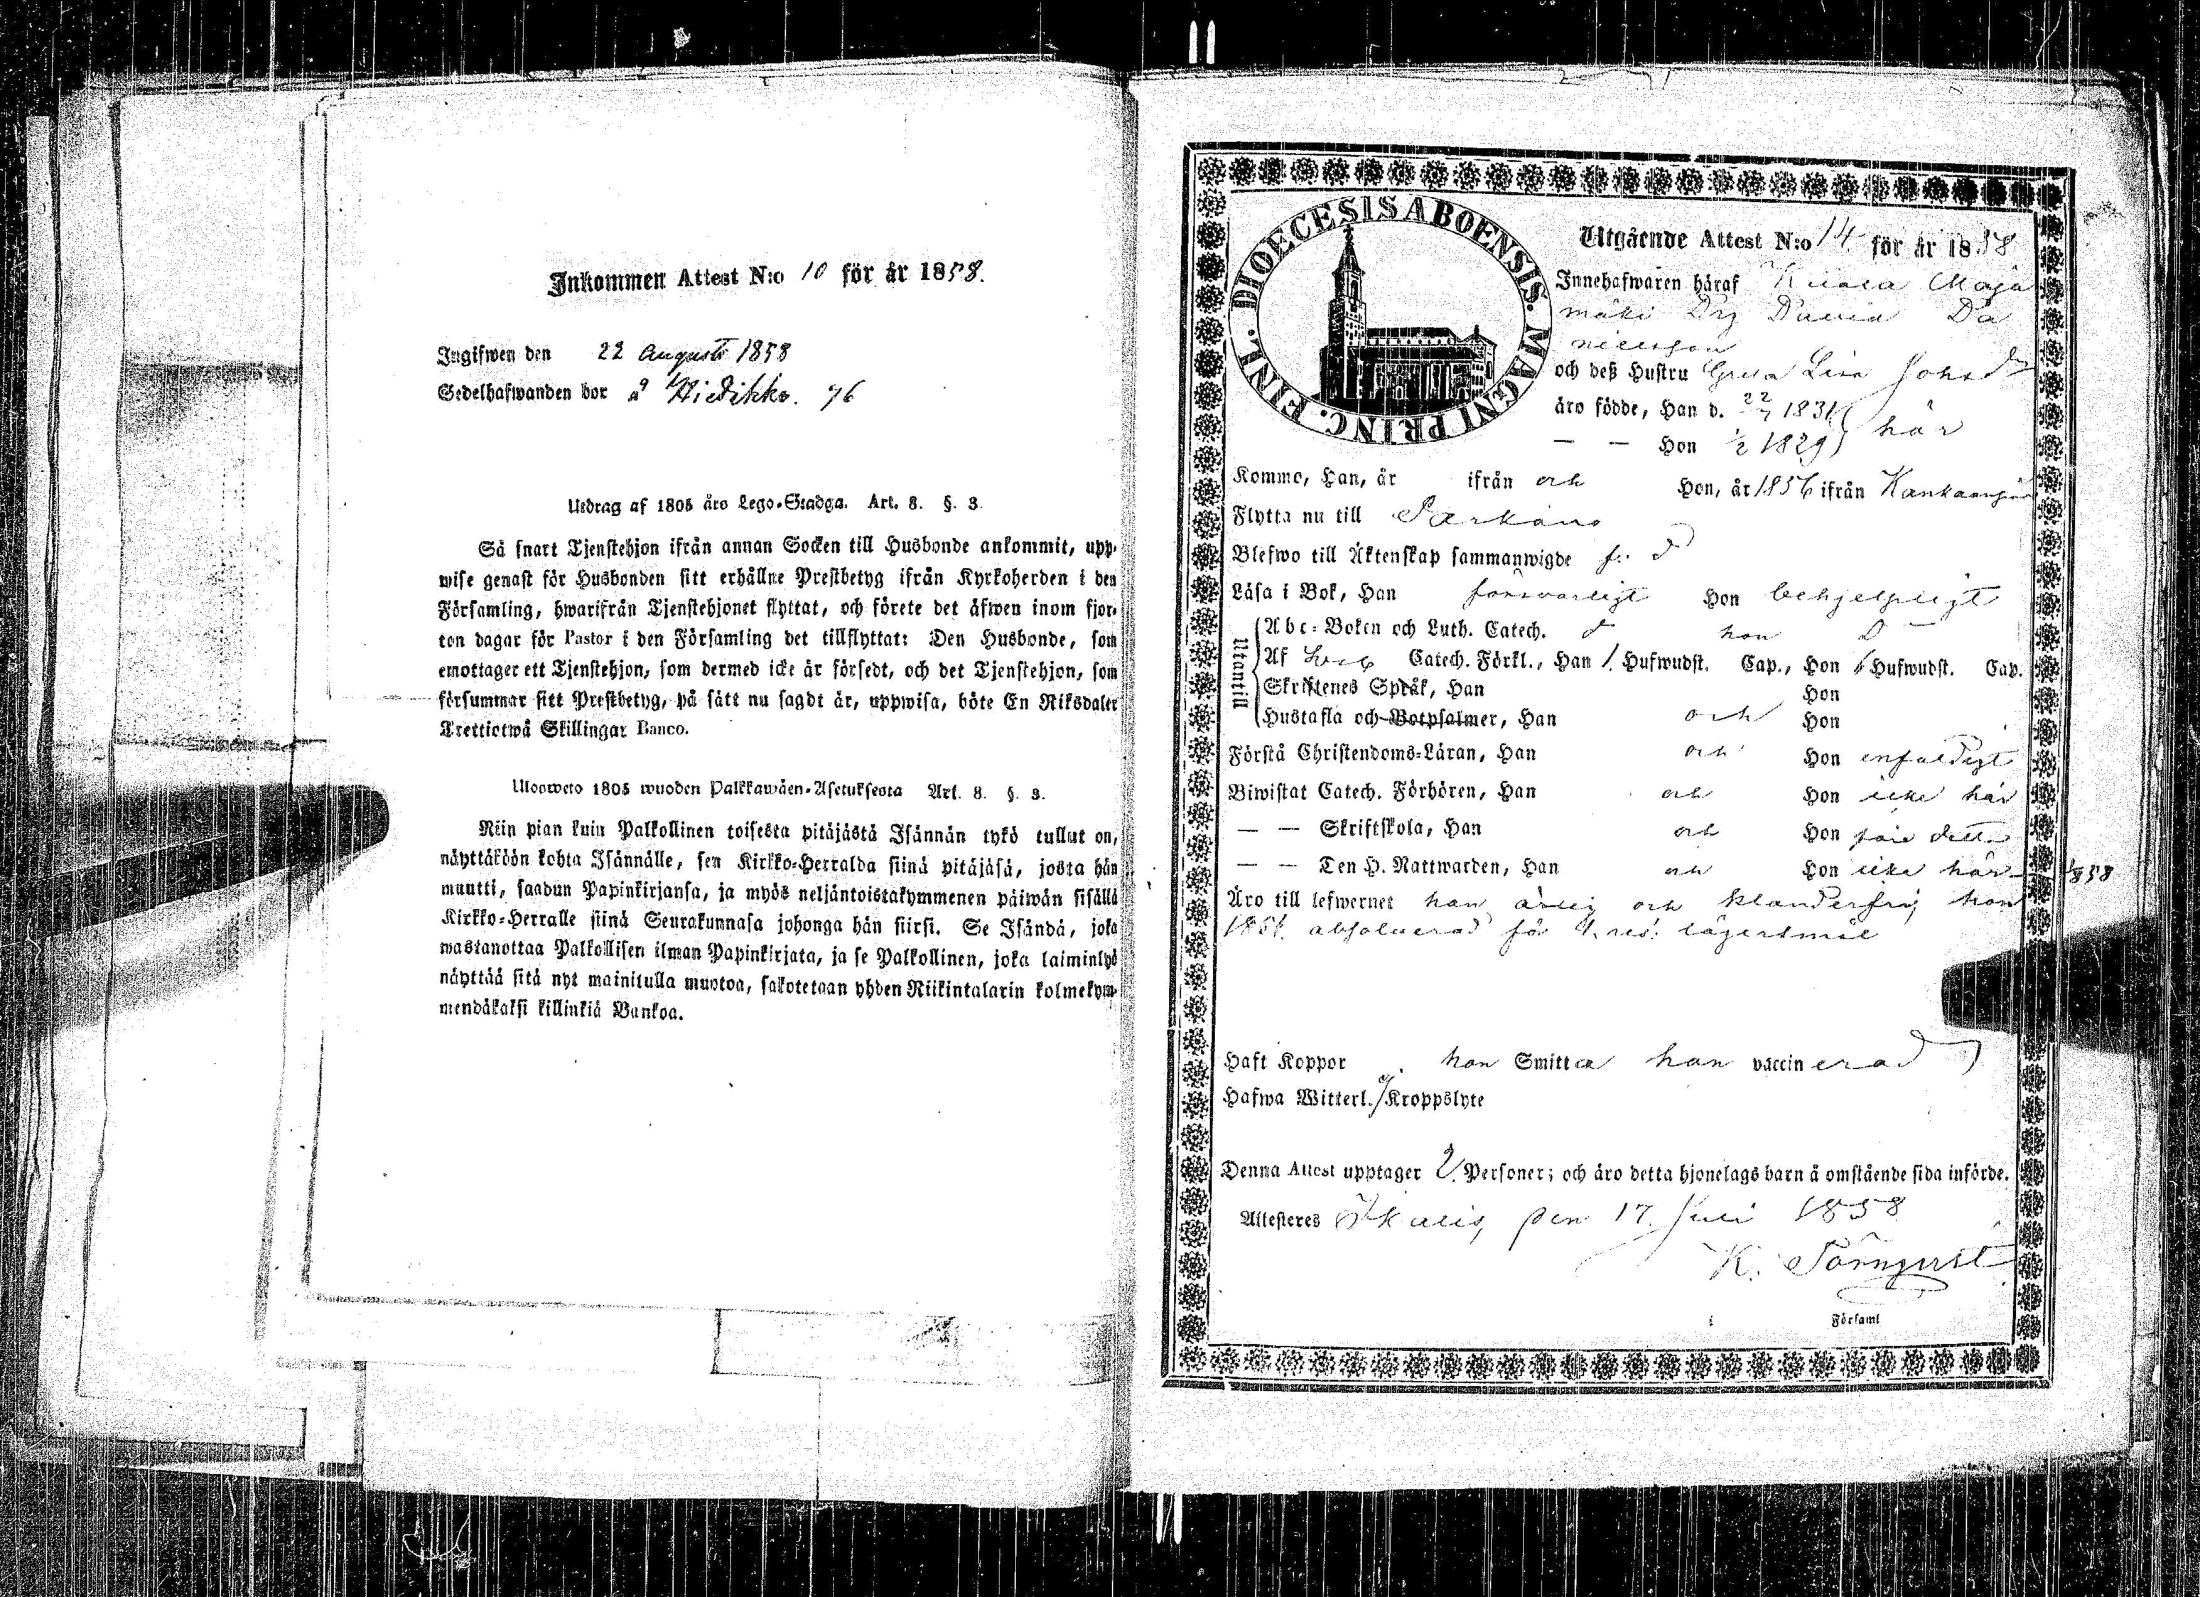 Inkommen Attest N:o 10 för år 1858.
Ingifwen den 22 Augusti 1858
Sedelhafwanden bor å 76
Utdrag af 1805 åro Lego-Stadga. Art. 8. §. 3.
Så snart Tjenstehjon ifrån annan Socken till Husbonde ankommit, upp-
wise genast för Husbonden sitt erhållne Prestbetyg ifrån Kyrkoherden i den
Församling, hwarifrån Tjenstehjonet flyttat, och förete det äfwen inom fjor-
ton dagar för Pastor i den Församling det tillflyttat: Den Husbonde, som
emottager ett Tjenstehjon, som dermed icke är försedt, och det Tjenstehjon, som
försummar sitt Prestbetyg, på sätt nu sagdt är, uppwisa, böte En Riksdaler
Trettiotwå Skillingar Banco.
Uloosweto 1805 wuoden Palkkawäen-Asetuksesta Art. 8. §. 3.
Niin pian kuin Palkollinen toisesta pitäjästä Isännän tykö tullut on,
näyttäköön kohta Isännälle, sen Kirkko-Herralda siinä pitäjäsä, josta hän
muutti, saadun Papinkirjansa, ja myös neljäntoistakymmenen päiwän sisällä
Kirkko-Herralle siinä Seurakunnasa johonga hän siirsi. Se Isändä, joka
wastanottaa Palkollisen ilman Papinkirjata, ja se Palkollinen, joka laiminlyö
näyttää sitä nyt mainitulla muotoa, sakotetaan yhden Riikintalarin kolmekym-
mendäkaksi killinkiä Bankoa.
DIOECESIS ABOENSIS. MAGNI PRINC. FINL.
Utgående Attest N:o 14 för år 1858
Innehafwaren häraf Maja
mäki Drg David Da
nielsson
och deß Hustru Greta Lisa Johsdr
äro födde, Han d. 22/7 1831
— — Hon 1/2 1829 här
Kommo, Han, år ifrån och Hon, år 1856 ifrån Kankaanpää
Flytta nu till Parkano
Blefwo till Äktenskap sammanwigde
Läsa i Bok, Han försvarligt Hon behjelpligt
Utantill
Abc-Boken och Luth. Catech. hon
Af Catech. Förkl., Han 1. Hufwudst. Cap., Hon Hufwudst. Cap.
Skriftenes Språk, Han Hon
Hustafla och Botpsalmer, Han och Hon
Förstå Christendoms-Läran, Han och Hon enfaldigt
Biwistat Catech. Förhören, Han och Hon icke här
— — Skriftskola, Han och Hon före detta
— — Den H. Nattwarden, Han och Hon icke här 1858
Äro till lefwernet han ärlig och klanderfri, hon
1851 absolverad för 1. res. lägersmål
Haft Koppor hon Smitta han vaccinerad
Hafwa Witterl. ej Kroppslyte
Denna Attest upptager 2. Personer; och äro detta hjonelags barn å omstående sida införde.
Attesteres Ikalis, den 17 Juli 1858
K. Törnqvist
i Församl